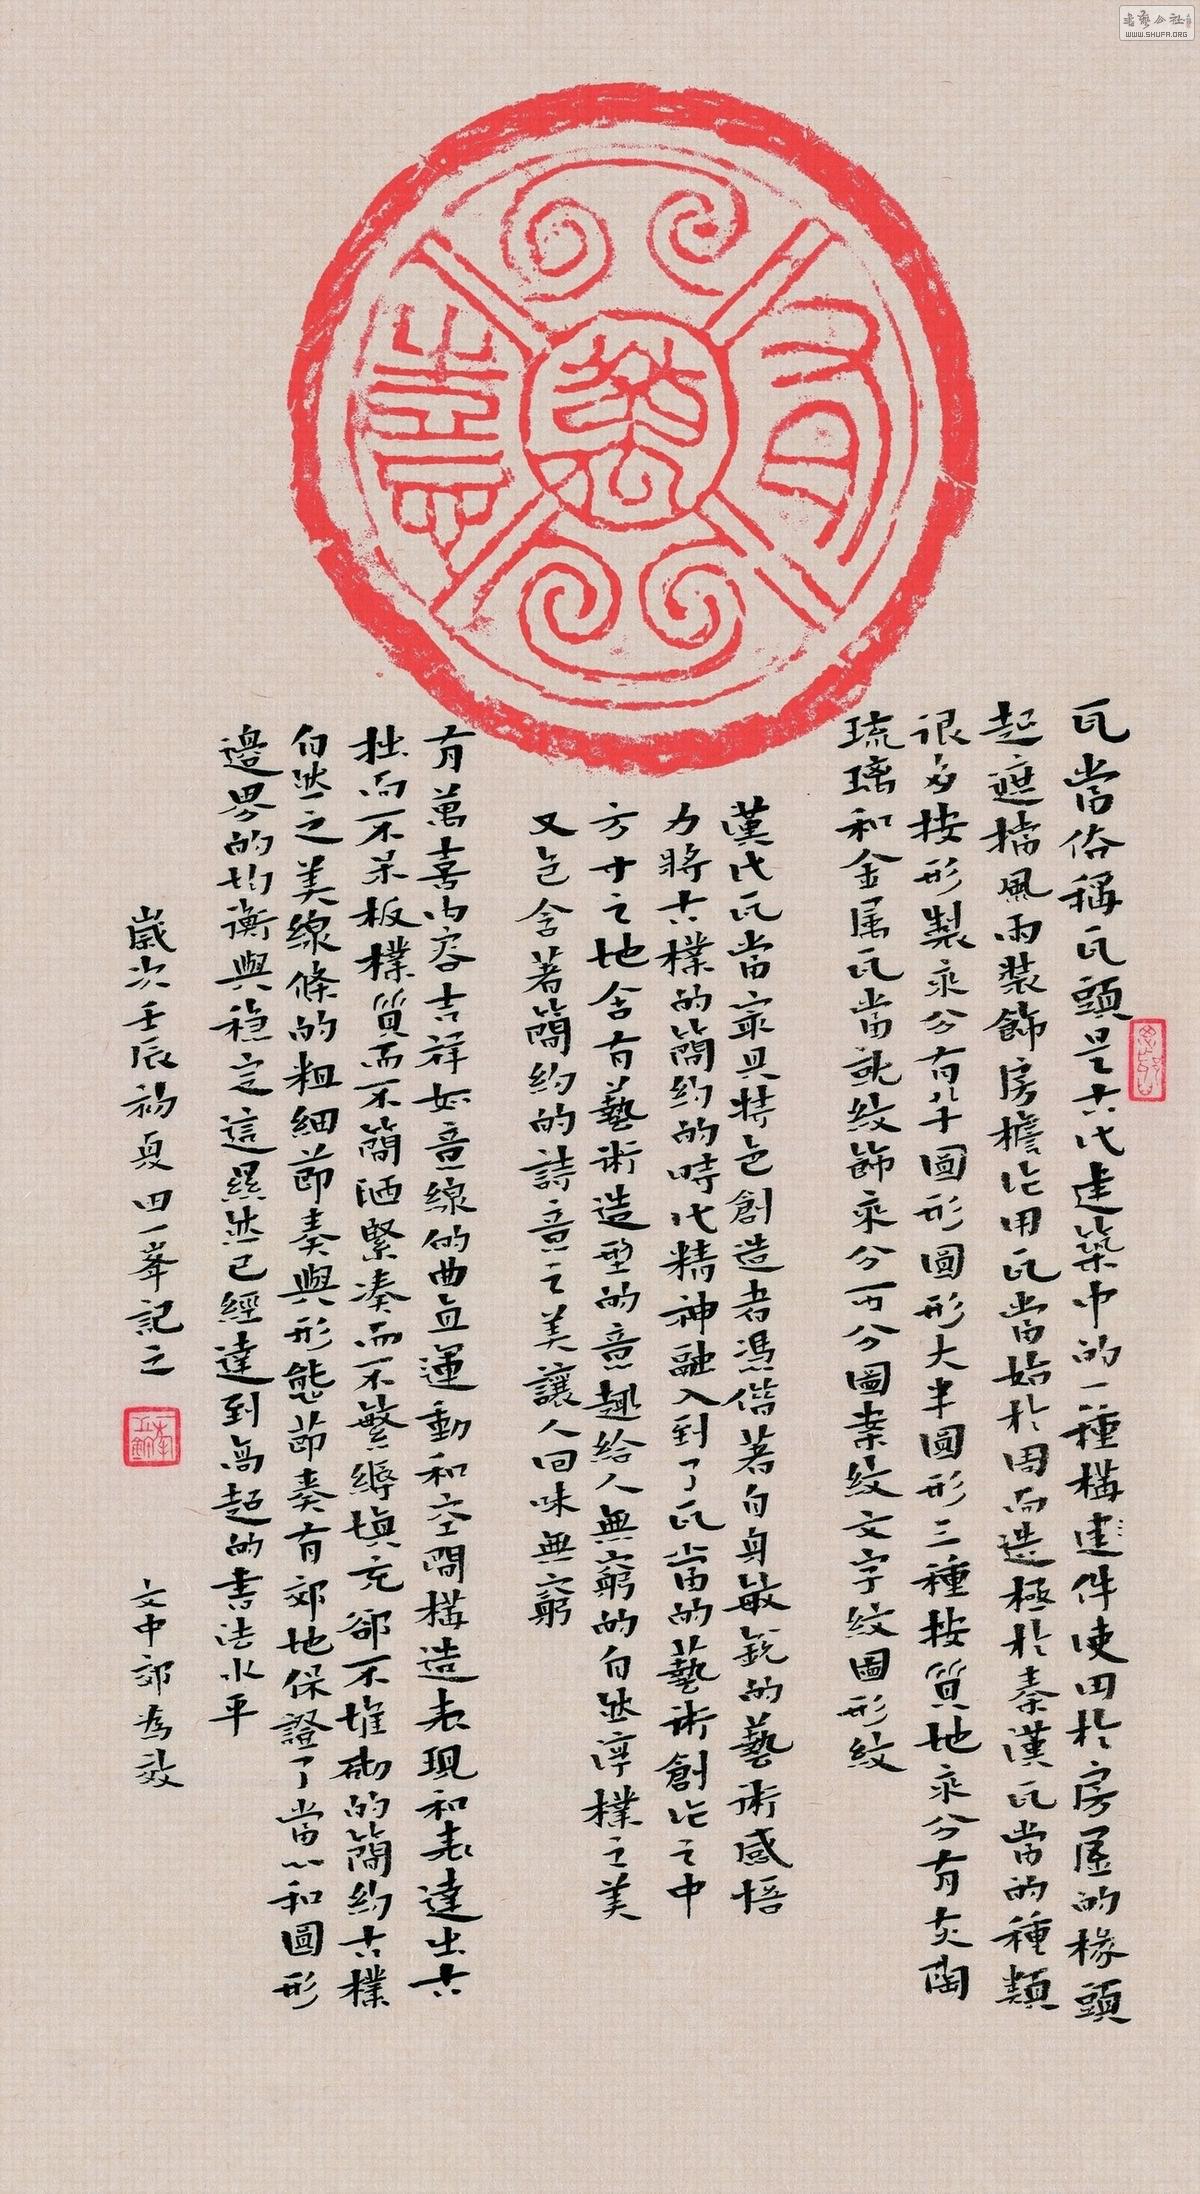 書藝公社
WWW.SHUFA.ORG
有萬憙
瓦當俗稱瓦頭是古代建築中的一種構建件使用於房屋的椽頭
起遮擋風雨裝飾房檐作用瓦當始於周而造極於秦漢瓦當的種類
很多按形製來分有半圓形圓形大半圓形三種按質地來分有灰陶
琉璃和金属瓦當就紋飾來分可分圖案紋文字紋圖形紋
漢代瓦當最具特色創造者憑借著自身敏銳的藝術感悟
力將古樸的簡約的時代精神融入到了瓦當的藝術創作之中
方寸之地含有藝術造型的意趣給人無窮的自然淳樸之美
又包含著簡約的詩意之美讓人回味無窮
有萬憙內容吉祥如意線的曲直運動和空間構造表現和表達出古
拙而不呆板樸質而不簡陋緊凑而不繁縟填充卻不堆砌的簡約古樸
自然之美線條的粗細節奏與形態節奏有郊地保證了當心和圓形
邊界的均衡與穩定這顯然已經達到高超的書法水平
歲次壬辰初夏四一峯記之
文中郊為效